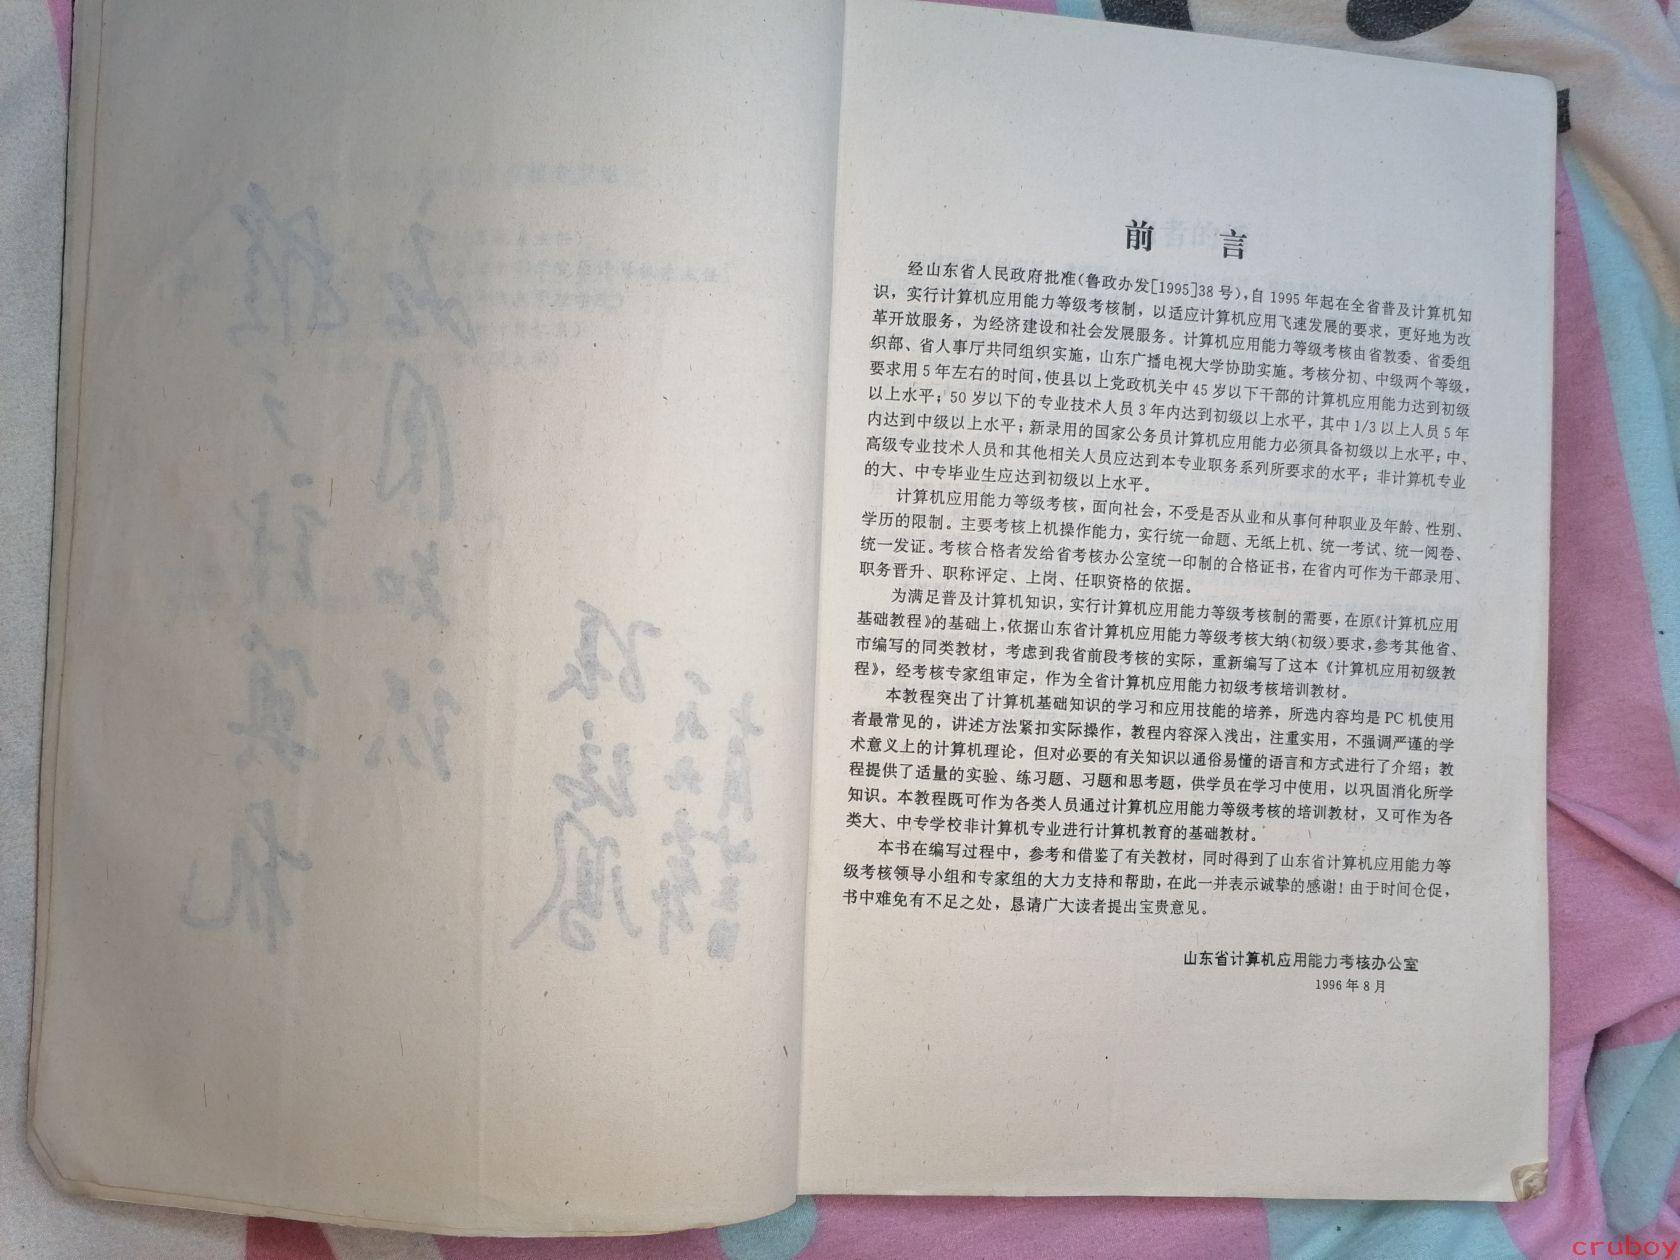 前言
经山东省人民政府批准(鲁政办发[1995]38号),自1995年起在全省普及计算机知
识，实行计算机应用能力等级考核制，以适应计算机应用飞速发展的要求，更好地为改
革开放服务，为经济建设和社会发展服务。计算机应用能力等级考核由省教委、省委组
织部、省人事厅共同组织实施，山东广播电视大学协助实施。考核分初、中级两个等级，
要求用5年左右的时间,使县以上党政机关中45岁以下干部的计算机应用能力达到初级
以上水平；50岁以下的专业技术人员3年内达到初级以上水平，其中1/3以上人员5年
内达到中级以上水平；新录用的国家公务员计算机应用能力必须具备初级以上水平；中、
高级专业技术人员和其他相关人员应达到本专业职务系列所要求的水平；非计算机专业
的大、中专毕业生应达到初级以上水平。
计算机应用能力等级考核，面向社会，不受是否从业和从事何种职业及年龄、性别、
学历的限制。主要考核上机操作能力，实行统一命题、无纸上机、统一考试、统一阅卷、
统一发证。考核合格者发给省考核办公室统一印制的合格证书，在省内可作为干部录用、
职务晋升、职称评定、上岗、任职资格的依据。
为满足普及计算机知识，实行计算机应用能力等级考核制的需要，在原《计算机应用
基础教程》的基础上,依据山东省计算机应用能力等级考核大纳(初级)要求,参考其他省、
市编写的同类教材，考虑到我省前段考核的实际，重新编写了这本《计算机应用初级教
程》，经考核专家组审定，作为全省计算机应用能力初级考核培训教材。
本教程突出了计算机基础知识的学习和应用技能的培养，所选内容均是PC机使用
者最常见的，讲述方法紧扣实际操作，教程内容深入浅出，注重实用，不强调严谨的学
术意义上的计算机理论，但对必要的有关知识以通俗易懂的语言和方式进行了介绍；教
程提供了适量的实验、练习题、习题和思考题，供学员在学习中使用，以巩固消化所学
知识。本教程既可作为各类人员通过计算机应用能力等级考核的培训教材，又可作为各
类大、中专学校非计算机专业进行计算机教育的基础教材。
本书在编写过程中，参考和借鉴了有关教材，同时得到了山东省计算机应用能力等
级考核领导小组和专家组的大力支持和帮助，在此一并表示诚挚的感谢！由于时间仓促，
书中难免有不足之处，恳请广大读者提出宝贵意见。
山东省计算机应用能力考核办公室
1996年8月
cruboy